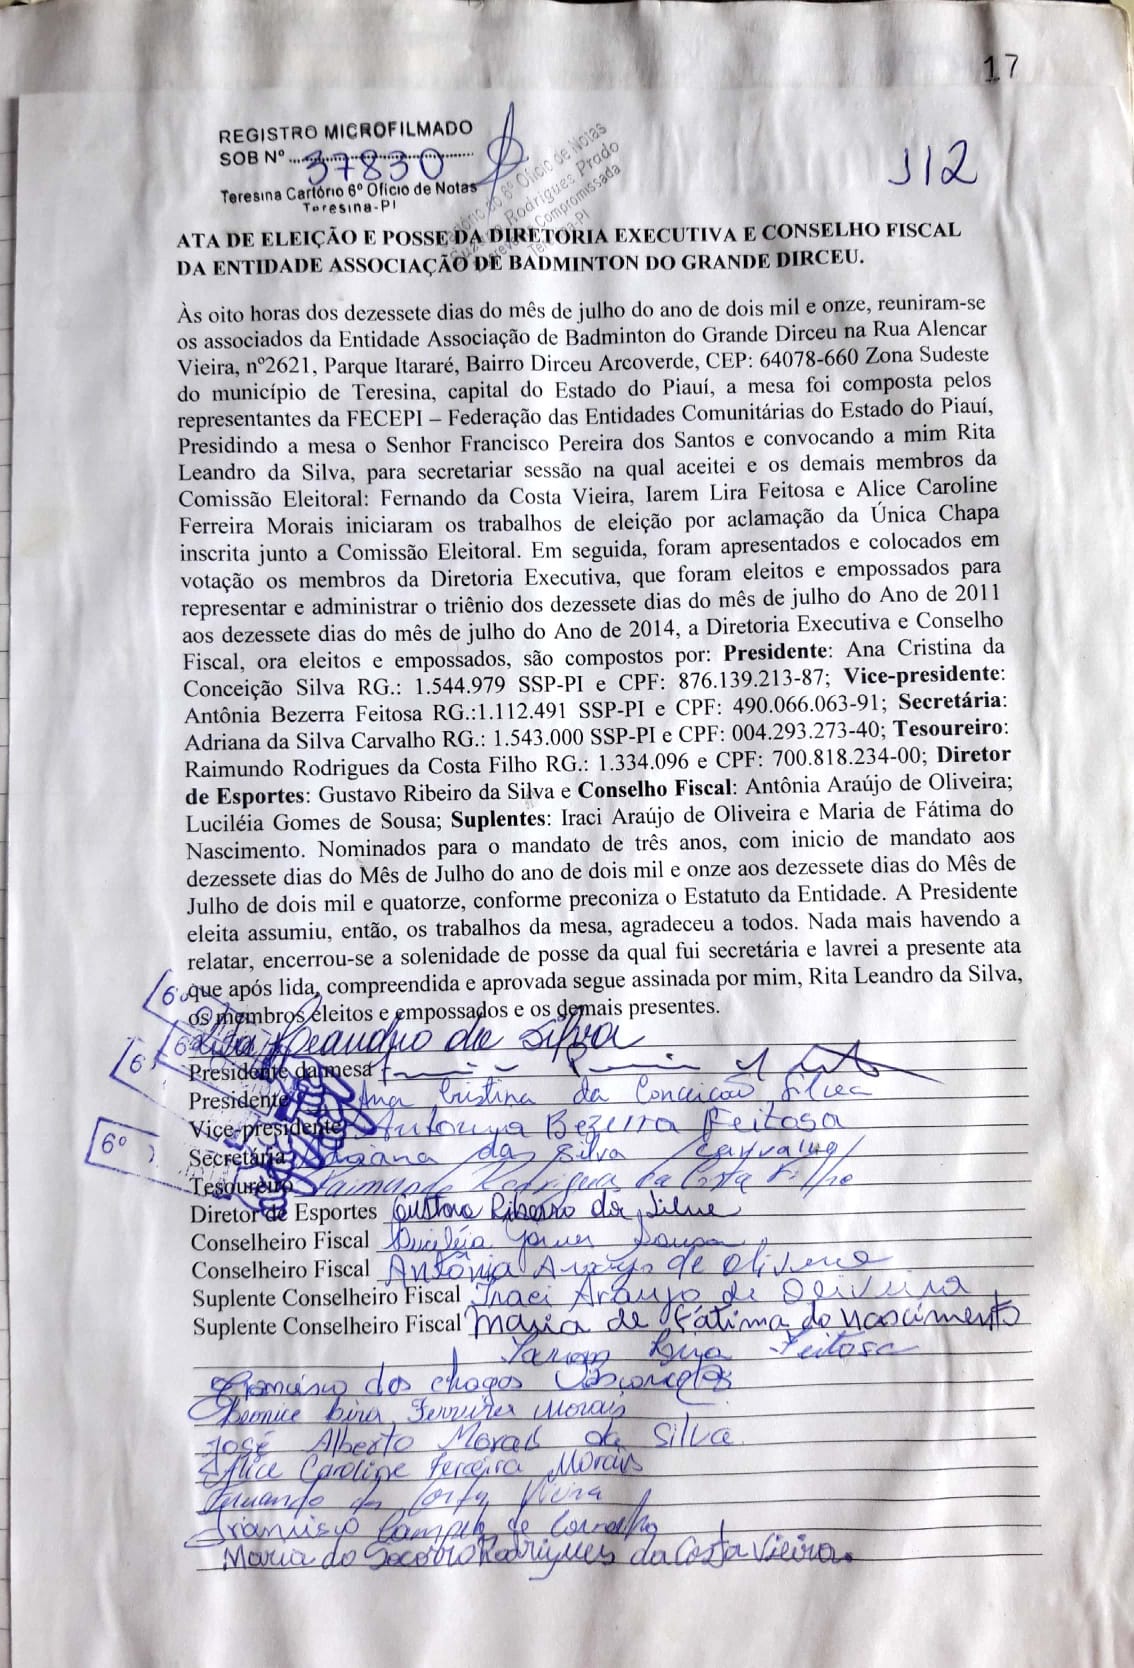 17
REGISTRO MICROFILMADO
SOB Nº 37830
Teresina Cartório 6º Ofício de Notas
Teresina-PI
J12
ATA DE ELEIÇÃO E POSSE DA DIRETORIA EXECUTIVA E CONSELHO FISCAL
DA ENTIDADE ASSOCIAÇÃO DE BADMINTON DO GRANDE DIRCEU.
Às oito horas dos dezessete dias do mês de julho do ano de dois mil e onze, reuniram-se
os associados da Entidade Associação de Badminton do Grande Dirceu na Rua Alencar
Vieira, nº2621, Parque Itararé, Bairro Dirceu Arcoverde, CEP: 64078-660 Zona Sudeste
do município de Teresina, capital do Estado do Piauí, a mesa foi composta pelos
representantes da FECEPI – Federação das Entidades Comunitárias do Estado do Piauí,
Presidindo a mesa o Senhor Francisco Pereira dos Santos e convocando a mim Rita
Leandro da Silva, para secretariar sessão na qual aceitei e os demais membros da
Comissão Eleitoral: Fernando da Costa Vieira, Iarem Lira Feitosa e Alice Caroline
Ferreira Morais iniciaram os trabalhos de eleição por aclamação da Única Chapa
inscrita junto a Comissão Eleitoral. Em seguida, foram apresentados e colocados em
votação os membros da Diretoria Executiva, que foram eleitos e empossados para
representar e administrar o triênio dos dezessete dias do mês de julho do Ano de 2011
aos dezessete dias do mês de julho do Ano de 2014, a Diretoria Executiva e Conselho
Fiscal, ora eleitos e empossados, são compostos por: Presidente: Ana Cristina da
Conceição Silva RG.: 1.544.979 SSP-PI e CPF: 876.139.213-87; Vice-presidente:
Antônia Bezerra Feitosa RG.:1.112.491 SSP-PI e CPF: 490.066.063-91; Secretária:
Adriana da Silva Carvalho RG.: 1.543.000 SSP-PI e CPF: 004.293.273-40; Tesoureiro:
Raimundo Rodrigues da Costa Filho RG.: 1.334.096 e CPF: 700.818.234-00; Diretor
de Esportes: Gustavo Ribeiro da Silva e Conselho Fiscal: Antônia Araújo de Oliveira;
Luciléia Gomes de Sousa; Suplentes: Iraci Araújo de Oliveira e Maria de Fátima do
Nascimento. Nominados para o mandato de três anos, com inicio de mandato aos
dezessete dias do Mês de Julho do ano de dois mil e onze aos dezessete dias do Mês de
Julho de dois mil e quatorze, conforme preconiza o Estatuto da Entidade. A Presidente
eleita assumiu, então, os trabalhos da mesa, agradeceu a todos. Nada mais havendo a
relatar, encerrou-se a solenidade de posse da qual fui secretária e lavrei a presente ata
que após lida, compreendida e aprovada segue assinada por mim, Rita Leandro da Silva,
os membros eleitos e empossados e os demais presentes.
Rita Leandro da Silva
Presidente da mesa
Presidente Ana Cristina da Conceição Silva
Vice-presidente Antonia Bezerra Feitosa
Secretária Adriana da Silva Carvalho
Tesoureiro Raimundo Rodrigues da Costa Filho
Diretor de Esportes Gustavo Ribeiro da Silva
Conselheiro Fiscal Luciléia Gomes Sousa
Conselheiro Fiscal Antônia Araújo de Oliveira
Suplente Conselheiro Fiscal Iraci Araujo de Oliveira
Suplente Conselheiro Fiscal Maria de Fátima do Nascimento
Iarem Lira Feitosa
Francisco das Chagas
Lira Ferreira Morais
José Alberto Morais da Silva
Alice Caroline Ferreira Morais
Fernando da Costa Vieira
Francisco de Carvalho
Maria do Socorro Rodrigues da Costa Vieira.